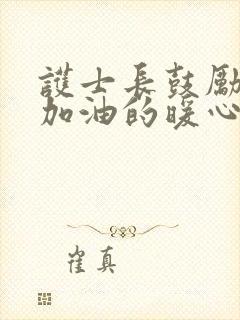 護士長鼓勵
加油的暖心
崔真